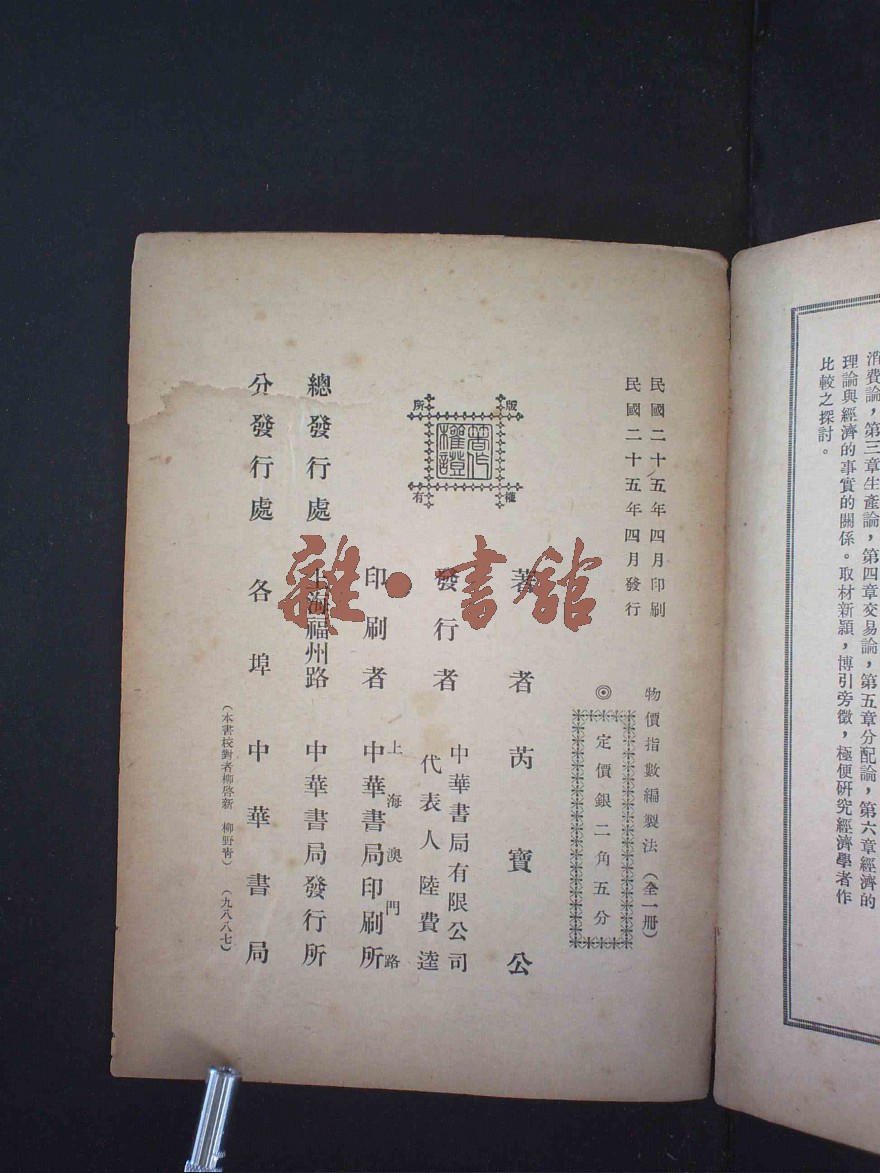 消費論，第三章生產論，第四章交易論，第五章分配論，第六章經濟的
理論與經濟的事實的關係。取材新穎，博引旁徵，極便研究經濟學者作
比較之探討。
民國二十五年四月印刷
民國二十五年四月發行
物價指數編製法（全一冊）
◎定價銀二角五分
版權所有
著作權證
著者芮寶公
發行者 中華書局有限公司
代表人陸費逵
印刷者 上海澳門路
中華書局印刷所
總發行處 上海福州路 中華書局發行所
分發行處 各埠 中華書局
（本書校對者柳啓新 柳野青）（九八八七）
雜·書館